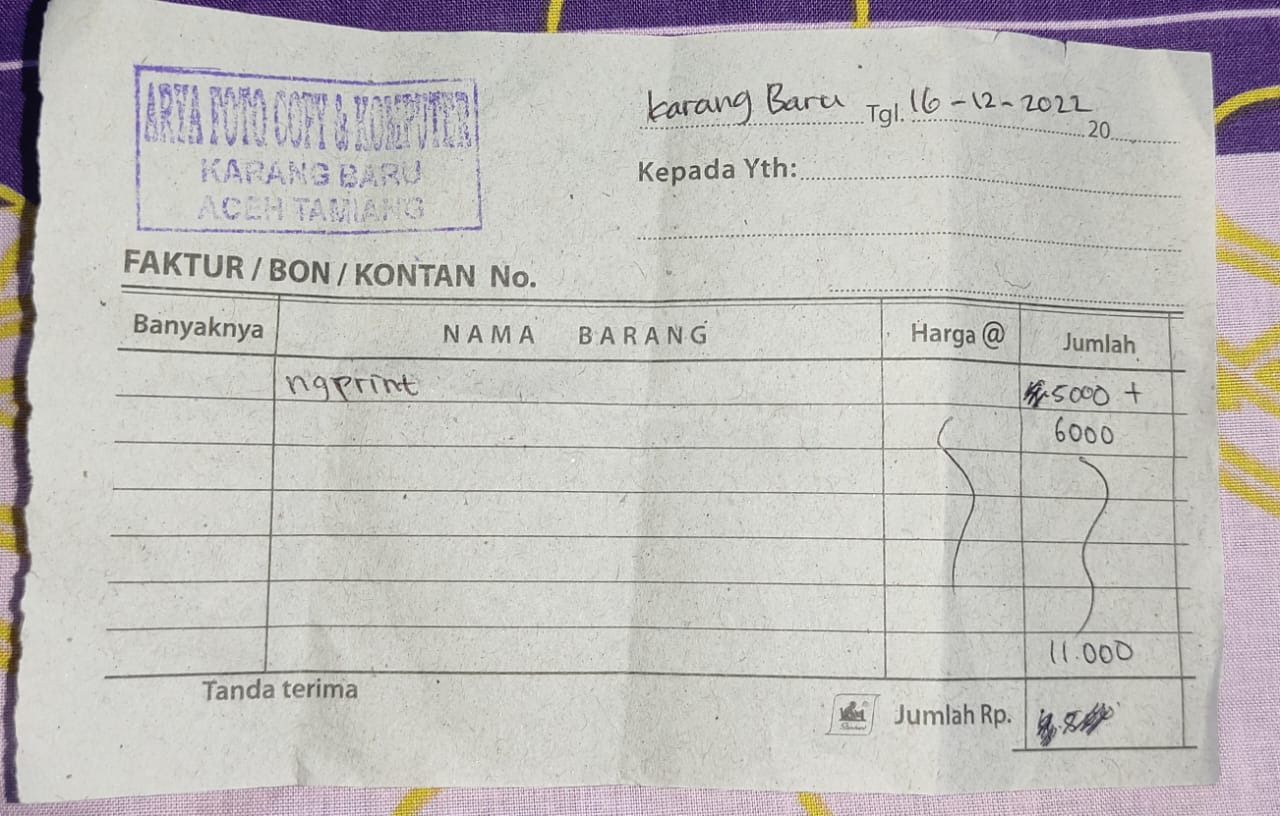 ARYA FOTO COPY & KOMPUTER
KARANG BARU
ACEH TAMIANG
Karang Baru Tgl. 16-12-2022 20
Kepada Yth:
FAKTUR / BON / KONTAN No.
Banyaknya NAMA BARANG Harga @ Jumlah
ngprint 5000 +
6000
11.000
Tanda terima
Jumlah Rp.